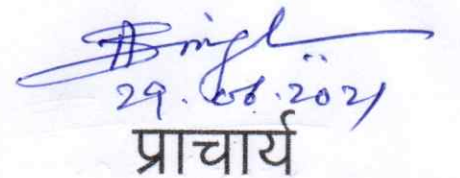 29.06.2021
प्राचार्य